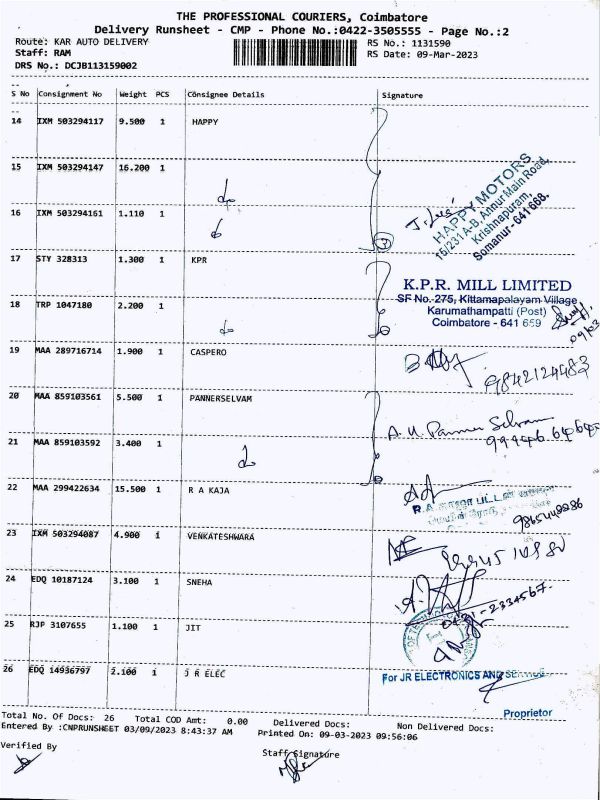 THE PROFESSIONAL COURIERS, Coimbatore
Delivery Runsheet - CMP - Phone No.:0422-3505555 - Page No.:2
Route: KAR AUTO DELIVERY
Staff: RAM
DRS No.: DCJB113159002
RS No.: 1131590
RS Date: 09-Mar-2023
S No Consignment No Weight PCS Consignee Details Signature
14 IXM 503294117 9.500 1 HAPPY
15 IXM 503294147 16.200 1
do
16 IXM 503294161 1.110 1
3
HAPPY MOTORS
15/231 A-B, Annur Main Road,
Krishnapuram,
Somanur - 641 668.
17 STY 328313 1.300 1 KPR
K.P.R. MILL LIMITED
SF No.-275, Kittamapalayam Village
Karumathampatti (Post)
Coimbatore - 641 659
18 TRP 1047180 2.200 1
do
09/03
19 MAA 289716714 1.900 1 CASPERO
9842124483
20 MAA 859103561 5.500 1 PANNERSELVAM
A. U. Panner Selvam
21 MAA 859103592 3.400 1
22 MAA 299422634 15.500 1 R A KAJA
23 IXM 503294087 4.900 1 VENKATESHWARA
24 EDQ 10187124 3.100 1 SNEHA
0421-2334567.
25 RJP 3107655 1.100 1 JIT
26 EDQ 14936797 2.100 1 J R ELEC
For JR ELECTRONICS AND
Proprietor
Total No. Of Docs: 26 Total COD Amt: 0.00 Delivered Docs: Non Delivered Docs:
Entered By :CNPRUNSHEET 03/09/2023 8:43:37 AM Printed On: 09-03-2023 09:56:06
Verified By
Staff Signature